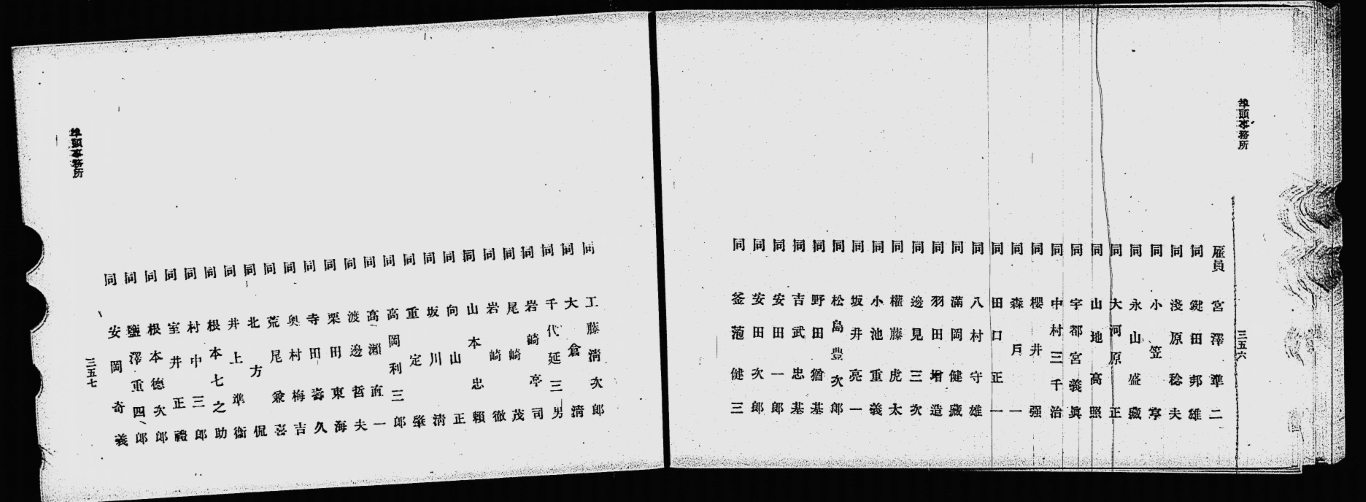 埠頭事務所
三五六
雇員 宮澤準二
同 鍵田邦雄
同 淺原稔夫
同 小笠寧
同 永山盛藏
同 大河原正
同 山地高照
同 宇都宮義眞
同 中村三千治
同 櫻井强
同 森戸一
同 田口正一
同 八村守雄
同 滿岡健藏
同 羽田增造
同 邊見三次
同 權藤虎太
同 小池重義
同 坂井亮一
同 松島豊次郎
同 野田猶基
同 吉武忠基
同 安田一郎
同 安田次郎
同 釜范健三
埠頭事務所
同 工藤淸次郎
同 大倉淸
同 千代延三男
同 岩崎亭司
同 尾崎茂
同 岩崎徹
同 山本忠頼
同 向山正
同 坂川淸
同 重定肇
同 高岡利三郎
同 高瀨直一
同 渡邊哲夫
同 栗田東海
同 寺田壽久
同 奥村梅吉
同 荒尾兼喜
同 北方侃
同 井上準衞
同 根本七之助
同 村中三郎
同 室井正禮
同 根本德次郎
同 鹽澤重四郎
同 安岡奇義
三五七